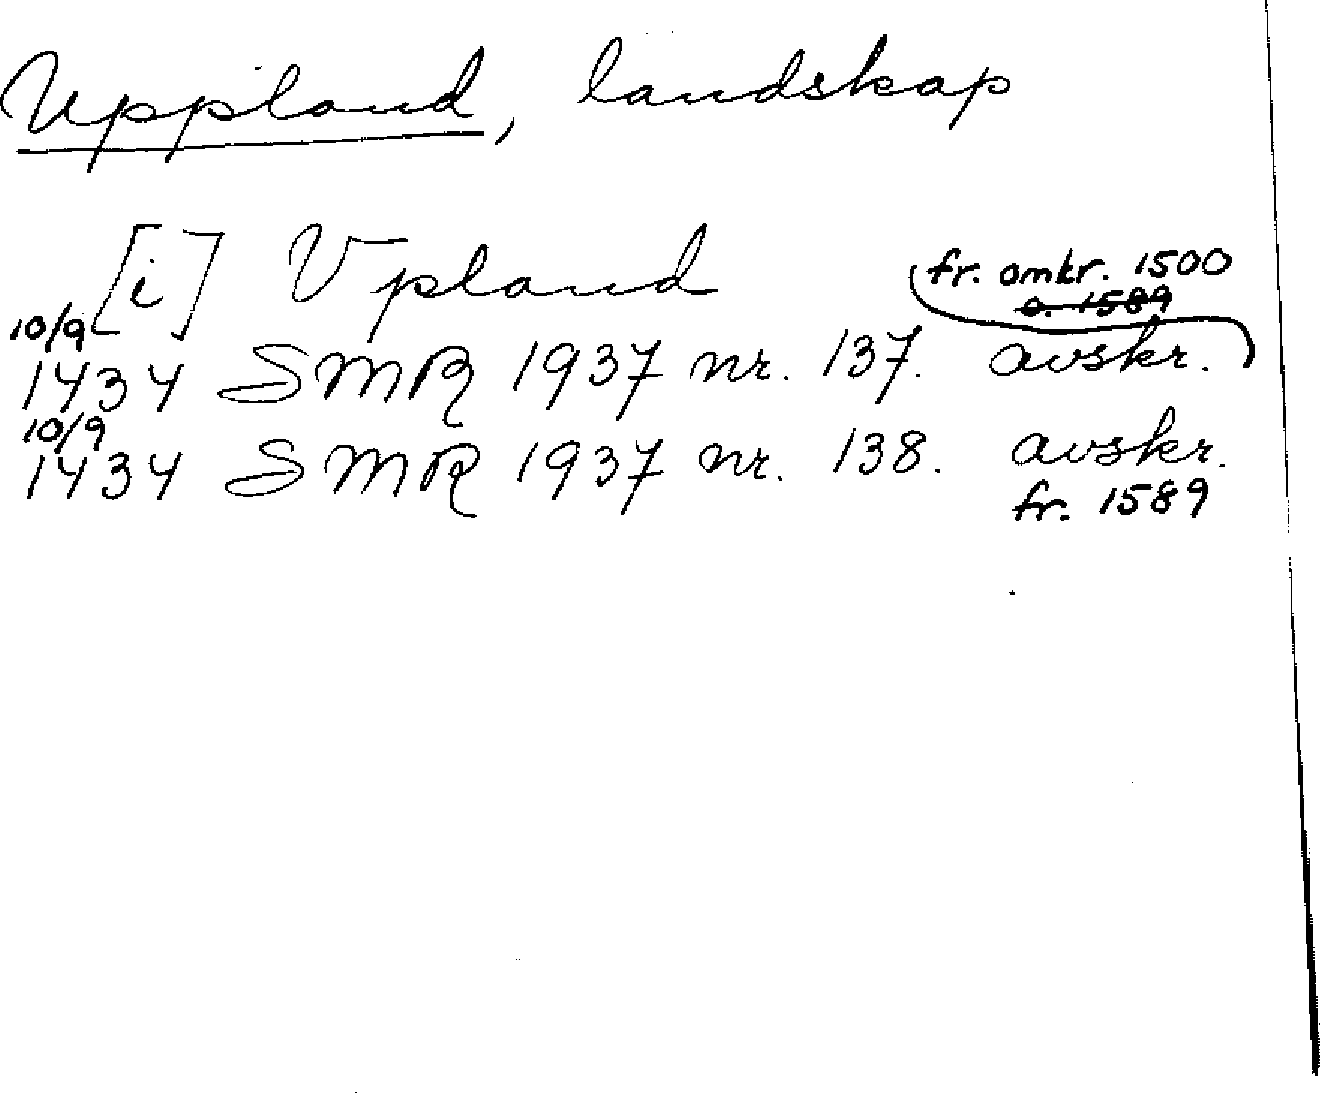 Uppland, landskap
[i] Vpland
10/9 fr. omkr. 1500
o. 1589
1434 SMR 1937 nr. 137. avskr.
10/9
1434 SMR 1937 nr. 138. avskr.
fr. 1589